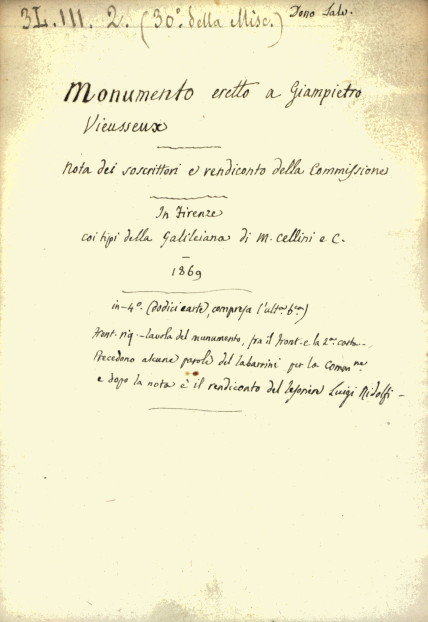 3L.III. 2. (30.º della Misc.) Dono Salv.
Monumento eretto a Giampietro
Vieusseux
Nota dei soscrittori e rendiconto della Commissione
In Firenze
coi tipi della Galileiana di M. Cellini e C.
1869
in-4º. (dodici carte, compresa l'ult.a b.ca)
front. riq. - tavola del munumento, fra il front. e la 2.a carta -
Precedono alcune parole del Tabarrini per la Comm.ne
e dopo la nota è il rendiconto del tesoriere Luigi Ridolfi -